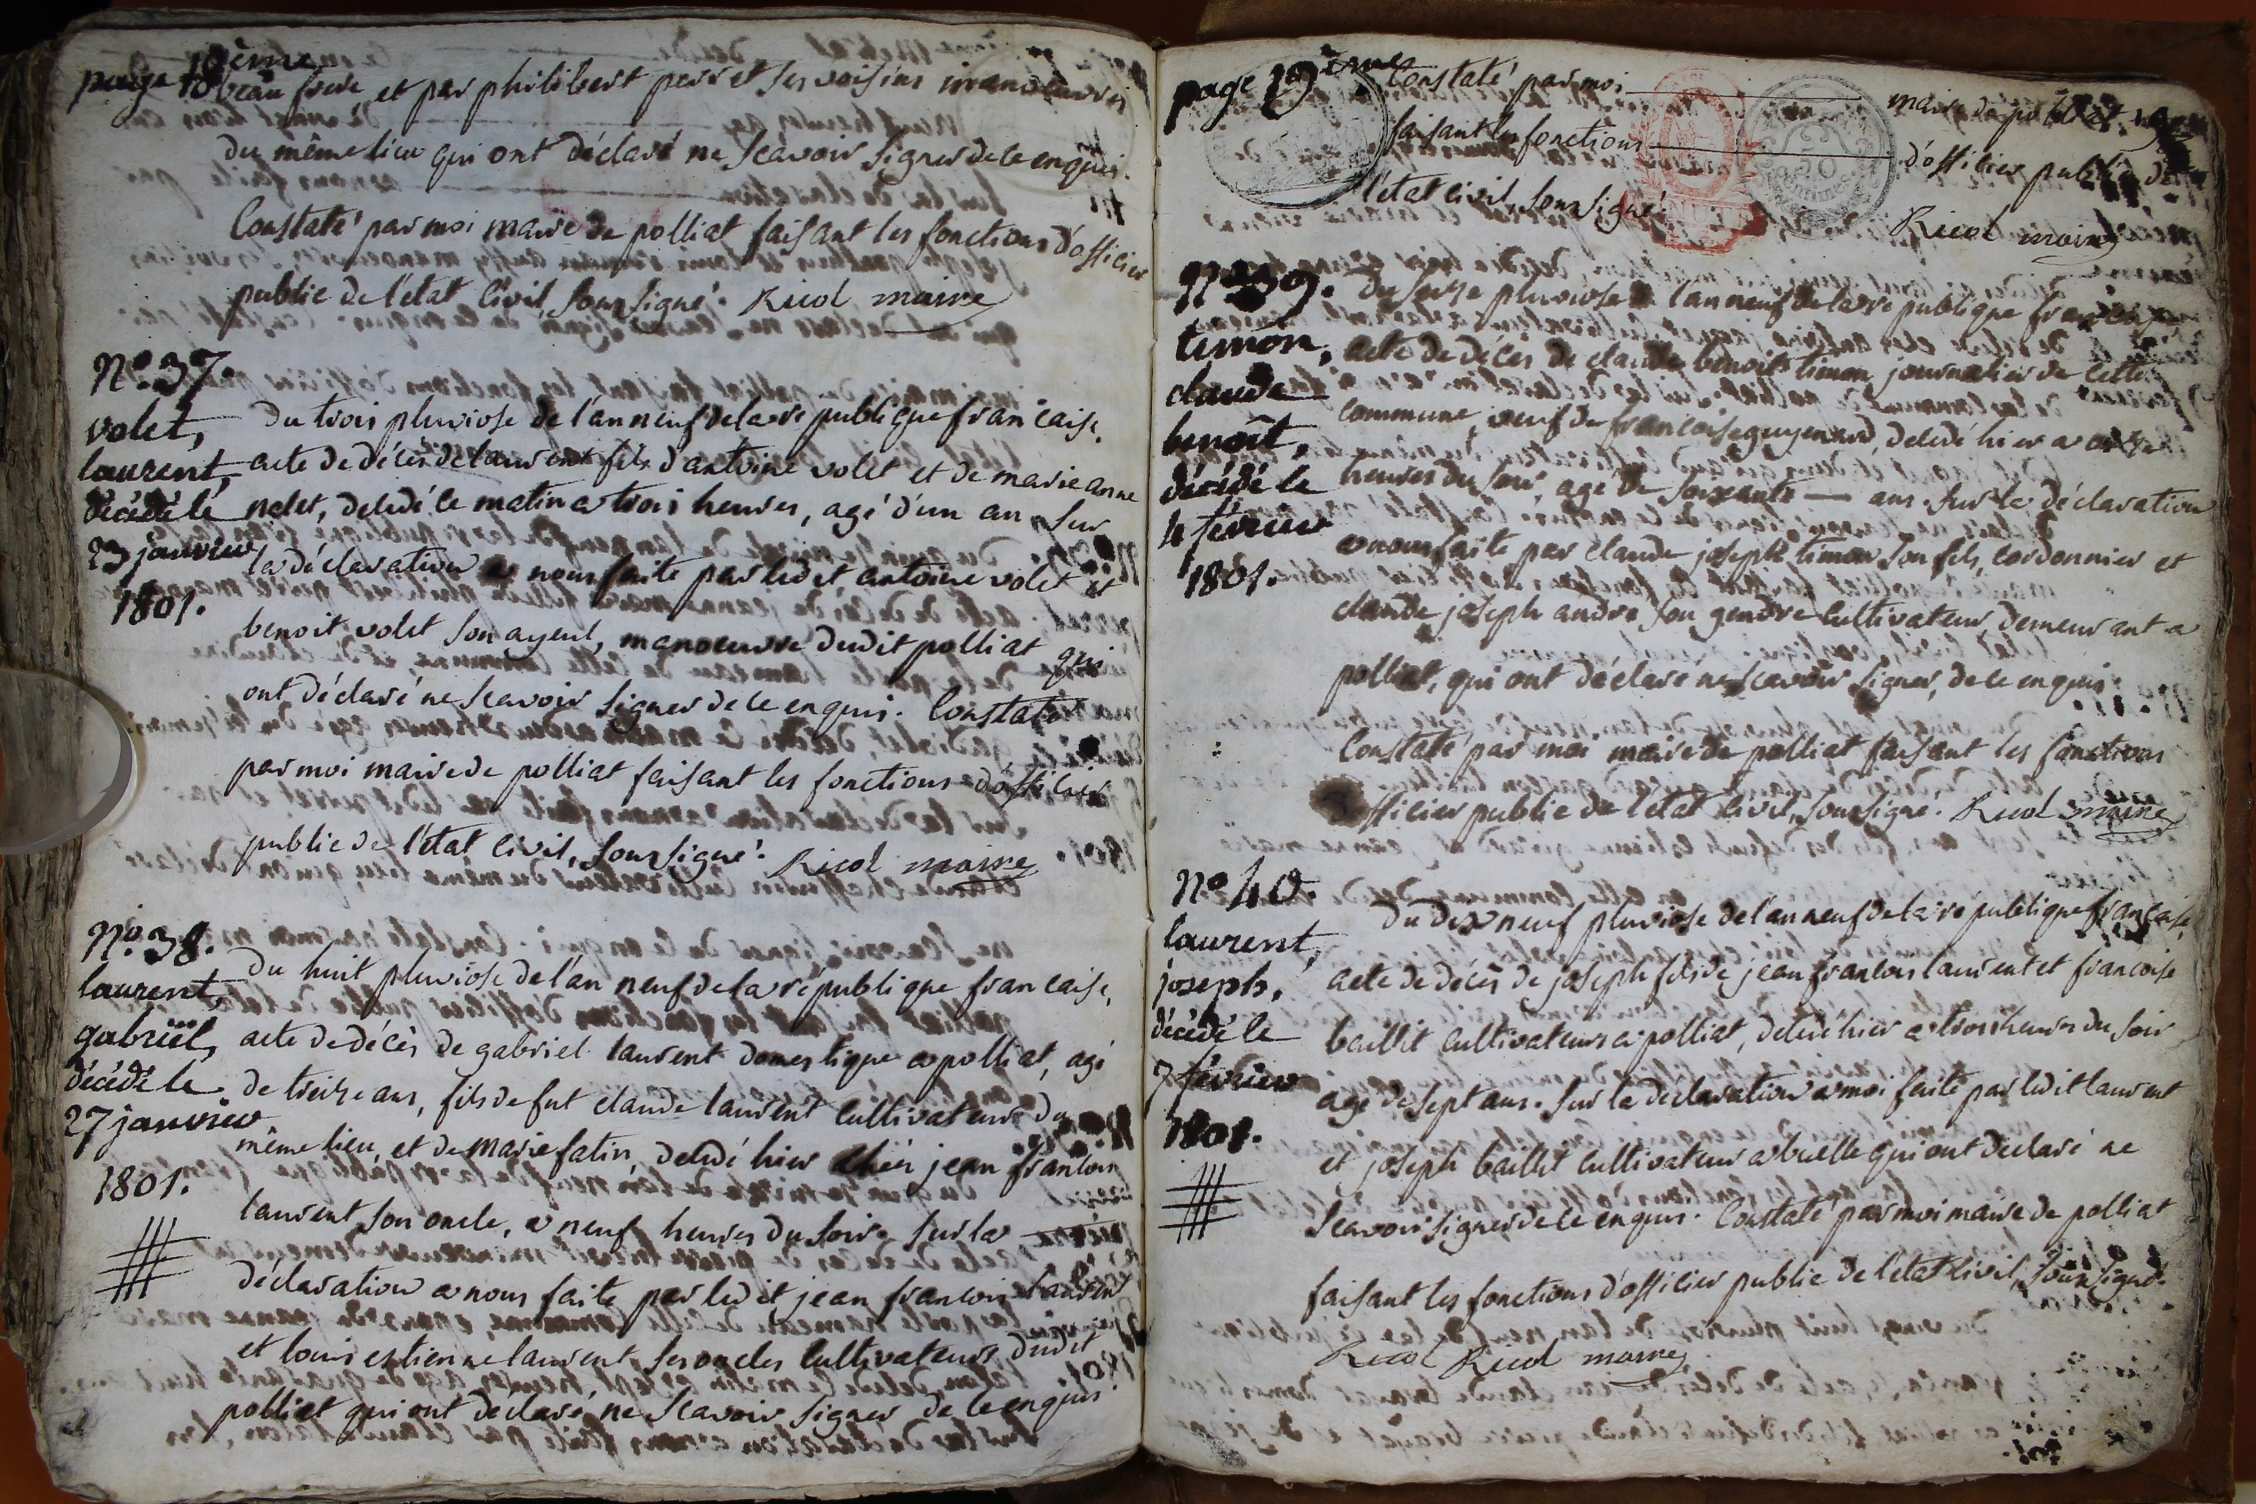 page 18ème
beau frere, et par philibert peret ses voisins manoeuvres
du même lieu qui ont déclaré ne scavoir signer de ce enquis.
Constaté par moi maire de polliat faisant les fonctions d'officier
public de l'état civil, soussigné. Ricol maire
N.º 37.
volet,
laurent,
décédé le
23 janvier
1801.
Du trois pluviose de l'an neuf de la république française,
acte de décès de laurent fils d'antoine volet et de marie anne
nelet, deledé ce matin a trois heures, agé d'un an, sur
la déclaration a nous faite par ledit antoine volet et
benoit volet son ayeul, manoeuvre dudit polliat qui
ont déclaré ne scavoir signer de ce enquis. Constaté
par moi maire de polliat faisant les fonctions d'officier
public de l'état civil, soussigné. Ricol maire
N.º 38.
laurent,
gabriël,
décédé le
27 janvier
1801.
Du huit pluviose de l'an neuf de la république francaise,
acte de décès de gabriel laurent domestique a polliat, agé
de treize ans, fils de fut claude laurent cultivateur du
même lieu, et de marie fatin, deledé hier chéz jean francois
laurent son oncle, a neuf heures du soir. sur la
déclaration a nous faite par ledit jean francois laurent
et louis estienne laurent, ses oncles cultivateurs dudit
polliat qui ont déclaré ne scavoir signer de ce enquis
page 19ème
Constaté par moi maire de polliat
faisant les fonctions d'officier public de
l'état civil, soussigné.
Ricol maire
Nº 39.
timon,
claude
benoît,
décédé le
4 février
1801.
Du seize pluviose de l'an neuf de la république française
acte de décès de claude benoit timon journalier de cette
commune, veuf de francoise guyennard, deledé hier a onze
heures du soir, agé de soixante ans. sur la déclaration
a nous faite par claude joseph timon son fils, cordonnier et
claude joseph andré son gendre cultivateur, demeurant a
polliat, qui ont déclaré ne scavoir signer, de ce enquis.
Constaté par moi maire de polliat faisant les fonctions
d'officier public de l'état civil, soussigné. Ricol maire
Nº 40.
laurent,
joseph,
décédé le
7 février
1801.
Du dix neuf pluviose de l'an neuf de la république française,
acte de décès de joseph fils de jean francois laurent et francoise
baillit cultivateurs a polliat, deledé hier a trois heures du soir
agé de sept ans. sur la déclaration a moi faite par ledit laurent
et joseph baillit cultivateur a buelle qui ont déclaré ne
scavoir signer de ce enquis. Constaté par moi maire de polliat
faisant les fonctions d'officier public de l'état civil, soussigné.
Ricol Ricol maire